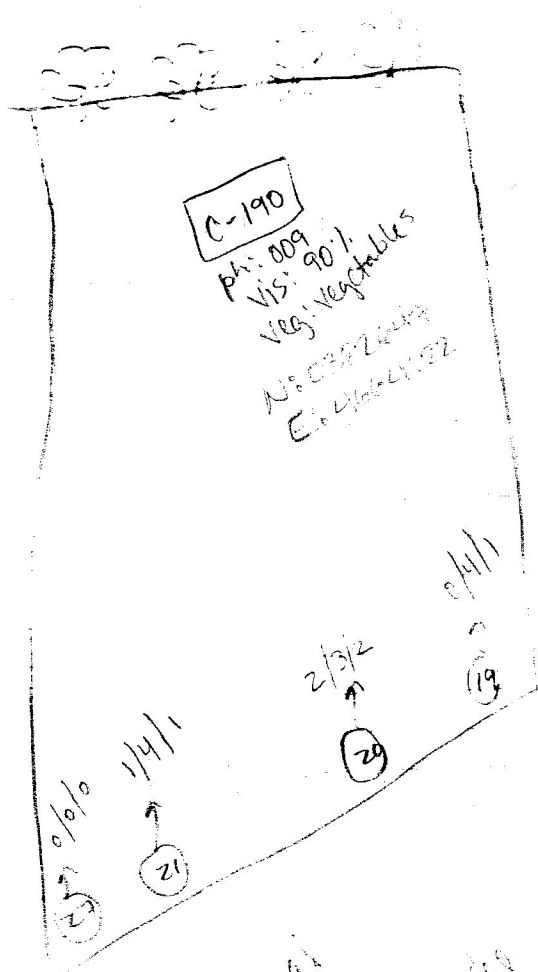 C-190
ph: 009
vis: 90%
veg: vegetables
0/4/1
19
2/3/2
20
1/4/1
21
0/0/0
27